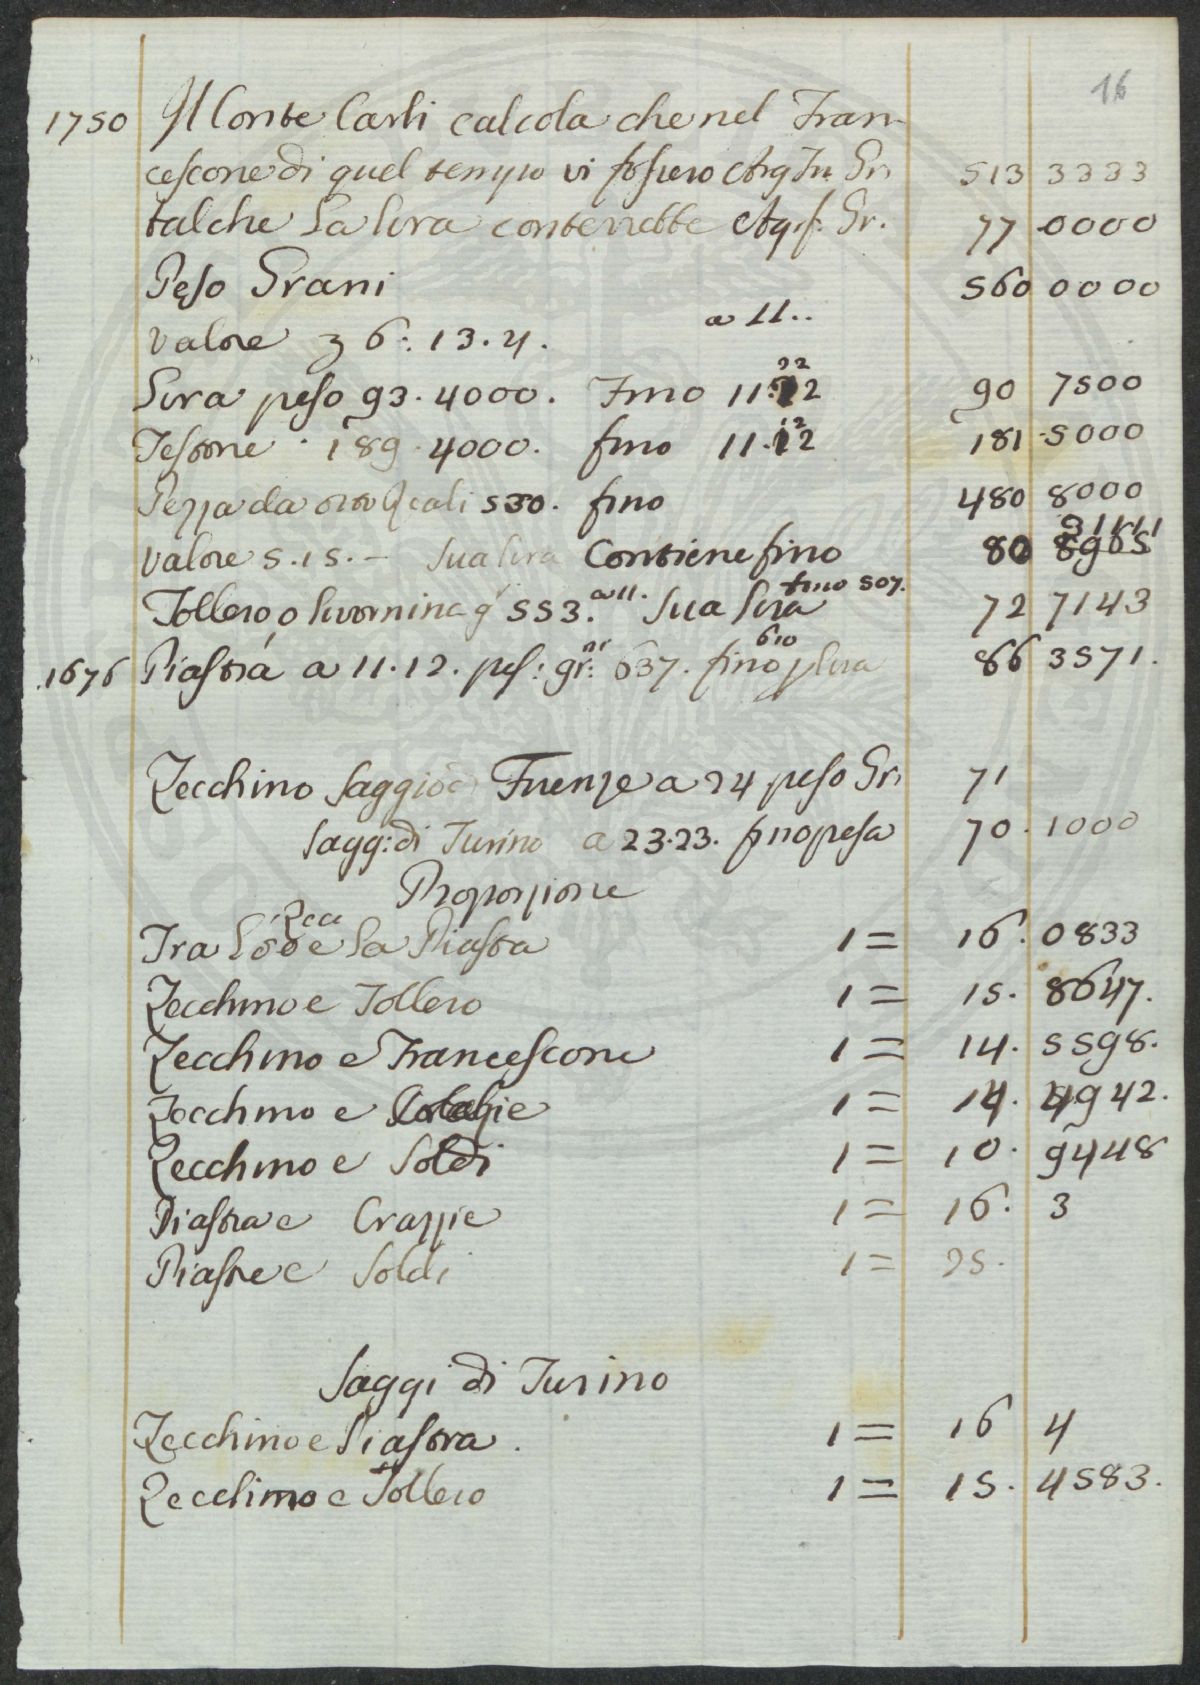 16
1750 Il Conte Carli calcola che nel Fran-
cescone di quel tempo vi fossero Arg Fn Gr. 513 3333
talche la lira conterrebbe Ag. f. Gr. 77 .0000
Peso Grani 560 0000
Valore 6. 13. 4. a 11..
Lira peso 93. 4000. Fino 11. 22 90 7500
Testone . 189. 4000. fino 11. 12 181 .5000
Pezza da otto Reali 530. fino 480 8000
Valore 5. 15. – sua lira Contiene fino 80
Tollero, o livornina g 553. a 11. sua lira fino 507. 72 7143
1676 Piastra a 11. 12. pes: gr. 637. fino 610 p lira 86 3571.
Zecchino saggio Firenze a 24 peso Gr. 71
sagg: di Turino a 23.23. fino pesa 70. 1000
Proporzione
Tra lo Zec e la Piastra 1 = 16. 0833
Zecchino e Tollero 1 = 15. 8647.
Zecchino e Francescone 1 = 14. 5598.
Zecchino e 1 = 14. 4942.
Zecchino e Soldi 1 = 10. 9448
Piastra e Crazzie 1 = 16. 3
Piastre e Soldi 1 = 25.
Saggi di Turino
Zecchino e Piastra . 1 = 16 4
Zecchino e Tollero 1 = 15. 4583.